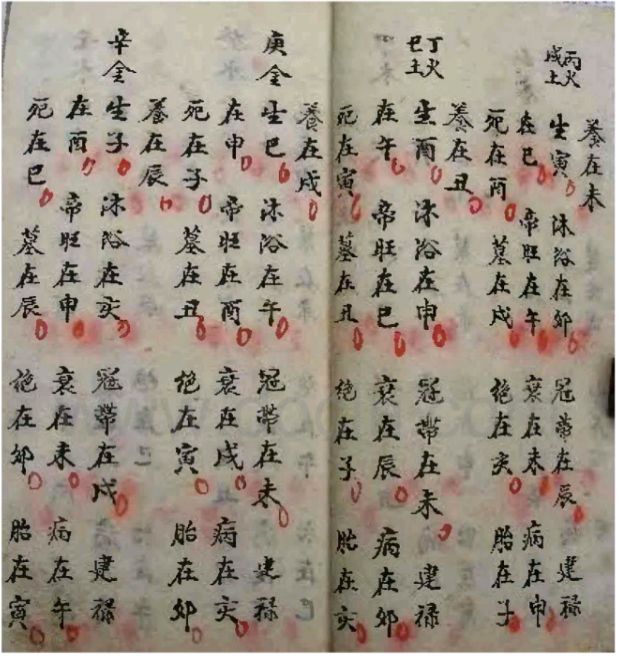 養在未
丙火
戊土
生寅 沐浴在卯 冠帶在辰 建禄
在巳 帝旺在午 衰在未 病在申
死在酉 墓在戌 绝在亥 胎在子
養在丑
丁火
己土
生酉 沐浴在申 冠帶在未 建禄
在午 帝旺在巳 衰在辰 病在卯
死在寅 墓在丑 绝在子 胎在亥
養在戌
庚金
生巳 沐浴在午 冠帶在未 建禄
在申 帝旺在酉 衰在戌 病在亥
死在子 墓在丑 绝在寅 胎在卯
養在辰
辛金
生子 沐浴在亥 冠帶在戌 建禄
在酉 帝旺在申 衰在未 病在午
死在巳 墓在辰 绝在卯 胎在寅